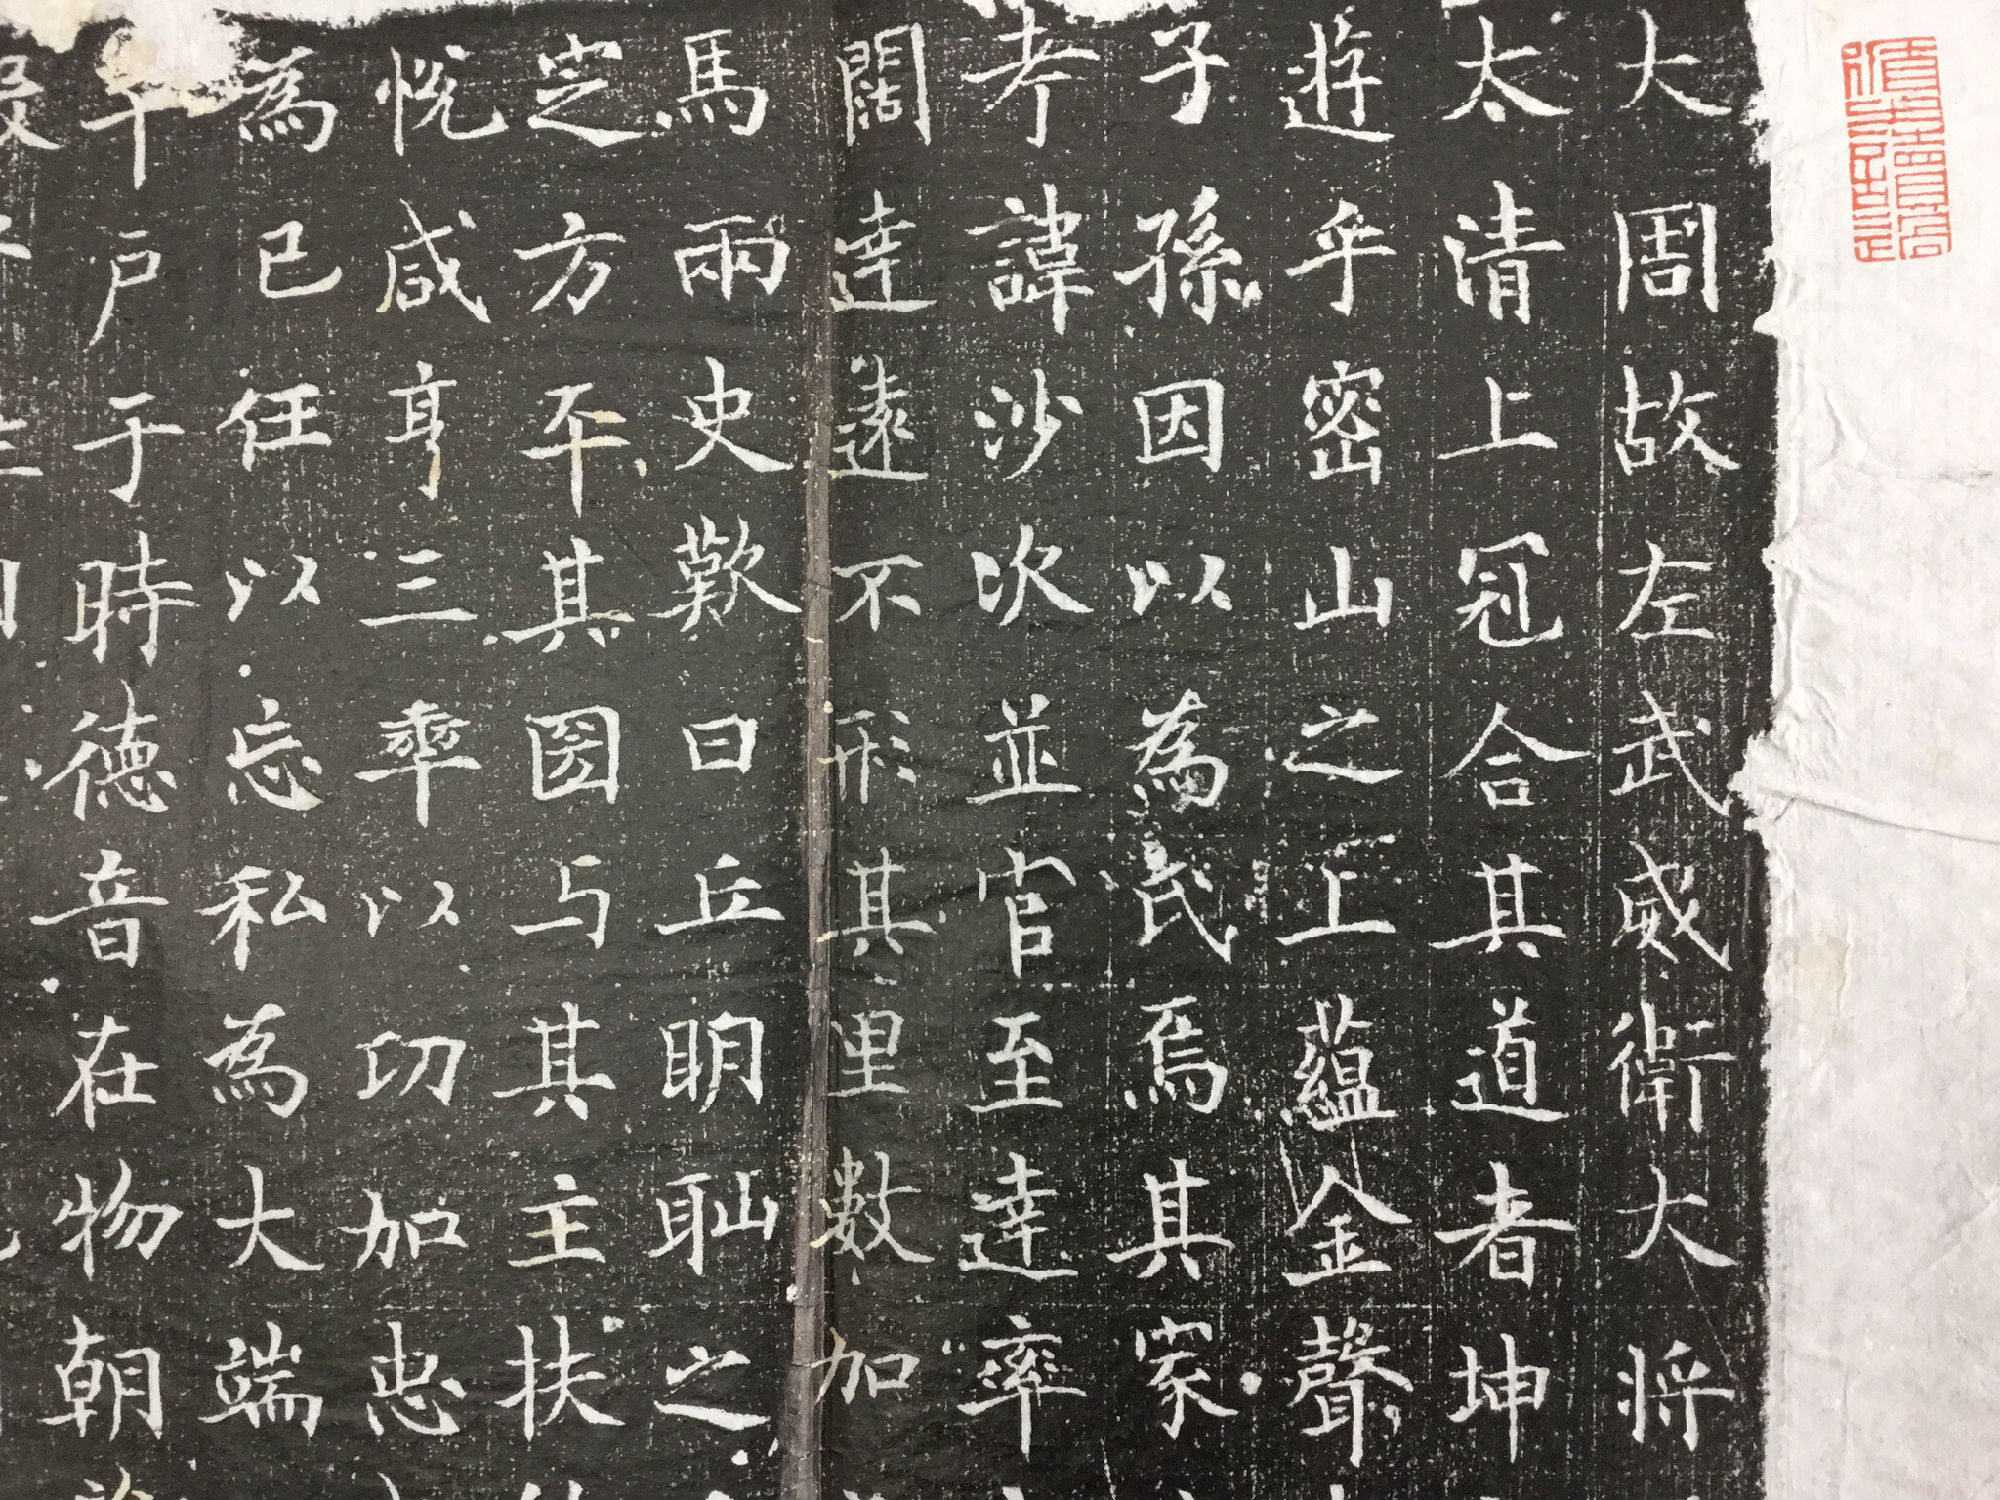 大周故左武威衛大將
太清上冠合其道者坤
遊乎密山之上蘊金聲
子孫因以為氏焉其家
考諱沙次並官至達達率
闊達遠不形其里數加
馬兩史歎曰丘明恥之
定方平其國与其主扶
悅咸亨三率以功加忠
為己任以忘私為大端
千戶于時德音在物朝